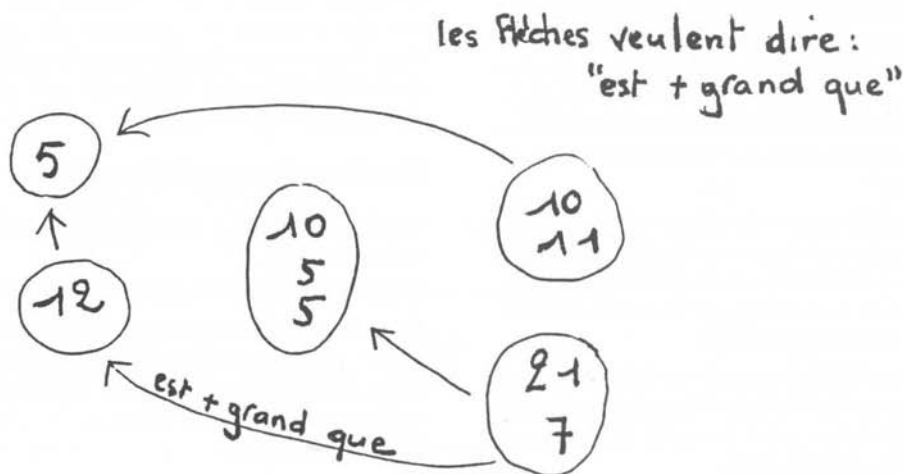 les flèches veulent dire:
"est + grand que"
5
10
11
10
5
5
12
21
7
est + grand que